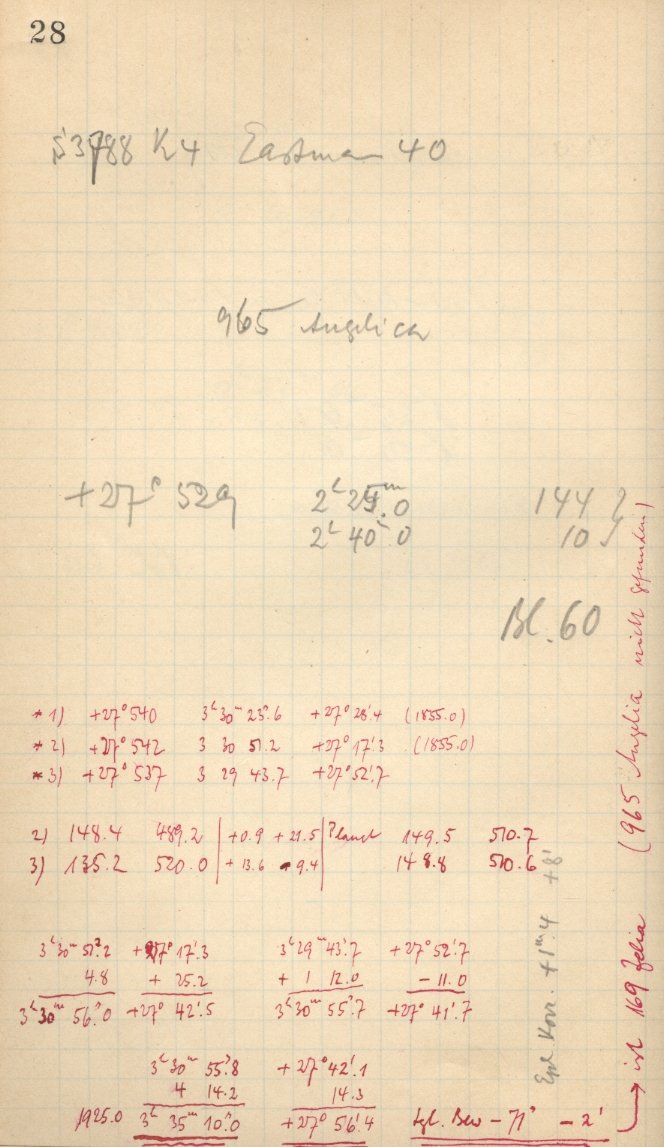 28
S3788 K4 Eastman 40
965 Angelica
+27° 529 2ʰ 25ᵐ.0 144
2ʰ 40ᵐ.0 10
Bl. 60
*1) +27°540 3ʰ30ᵐ23ˢ.6 +27°28'.4 (1855.0)
*2) +27°542 3 30 51.2 +27°17'.3 (1855.0)
*3) +27°537 3 29 43.7 +27°52'.7
2) 148.4 489.2 +0.9 +21.5 Planet 149.5 510.7
3) 135.2 520.0 +13.6 -9.4 148.8 510.6
3ʰ30ᵐ51ˢ.2 +27°17'.3 3ʰ29ᵐ43ˢ.7 +27°52'.7
4.8 + 25.2 + 1 12.0 -11.0
3ʰ30ᵐ56ˢ.0 +27°42'.5 3ʰ30ᵐ55ˢ.7 +27°41'.7
3ʰ30ᵐ55ˢ.8 +27°42'.1
4 14.2 14.3
1925.0 3ʰ35ᵐ10ˢ.0 +27°56'.4 tgl. Bew -71ˢ -2'
Eph Korr. +1ᵐ.4 +8'
→ ist 169 Zelia (965 Angelia nicht gefunden)